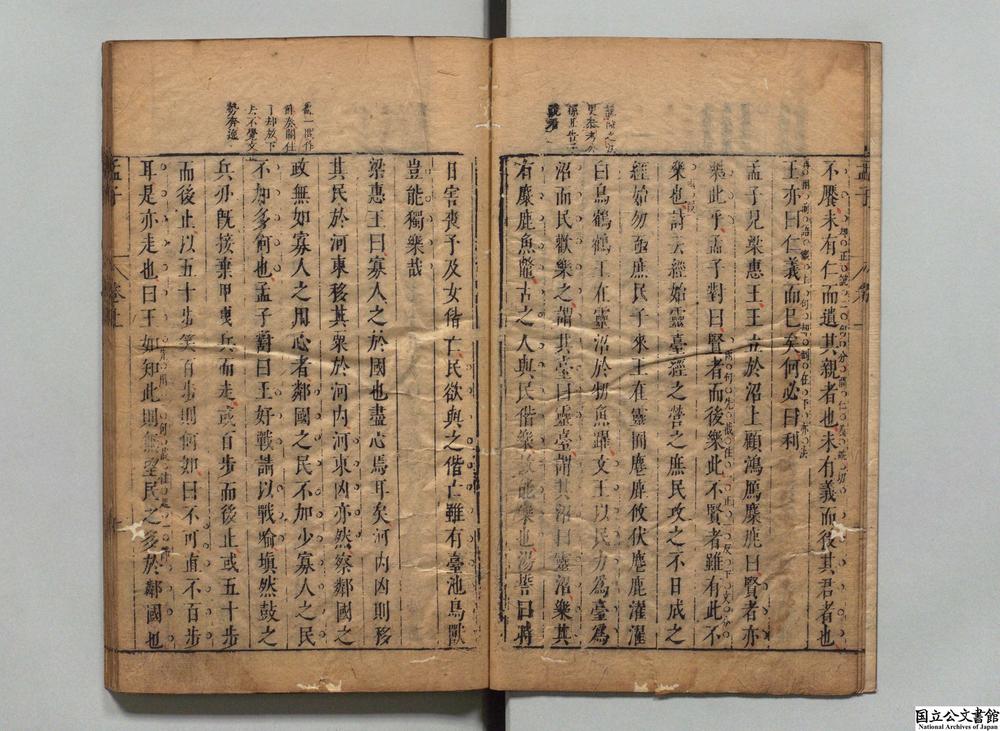 不饜未有仁而遺其親者也未有義而後其君者也
王亦曰仁義而已矣何必曰利
孟子見梁惠王王立於沼上顧鴻鴈麋鹿曰賢者亦
樂此乎孟子對曰賢者而後樂此不賢者雖有此不
樂也詩云經始靈臺經之營之庶民攻之不日成之
經始勿亟庶民子來王在靈囿麀鹿攸伏麀鹿濯濯
白鳥鶴鶴王在靈沼於牣魚躍文王以民力為臺為
沼而民歡樂之謂其臺曰靈臺謂其沼曰靈沼樂其
有麋鹿魚鼈古之人與民偕樂故能樂也湯誓曰時
日害喪予及女偕亡民欲與之偕亡雖有臺池鳥獸
豈能獨樂哉
梁惠王曰寡人之於國也盡心焉耳矣河內凶則移
其民於河東移其粟於河內河東凶亦然察鄰國之
政無如寡人之用心者鄰國之民不加少寡人之民
不加多何也孟子對曰王好戰請以戰喻填然鼓之
兵刃既接棄甲曳兵而走或百步而後止或五十步
而後止以五十步笑百步則何如曰不可直不百步
耳是亦走也曰王如知此則無望民之多於鄰國也
孟子
國立公文書館
National Archives of Japan